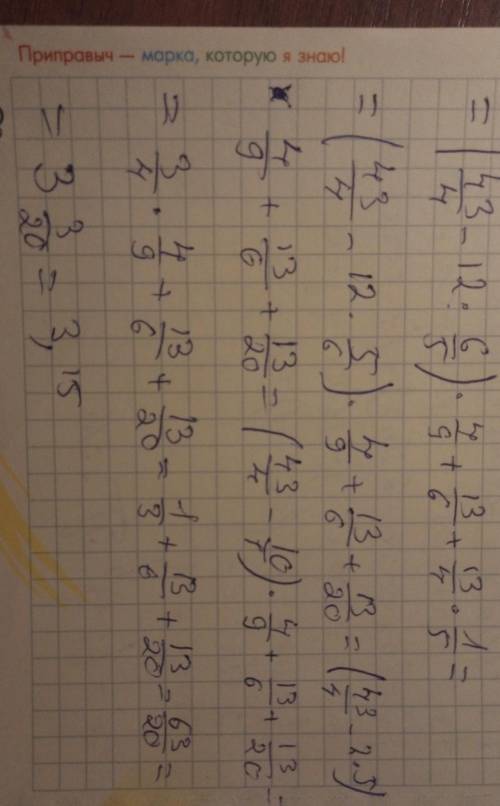 Приправыч — марка, которую я знаю!
= (43/4 - 12 : 6/5) · 4/9 + 13/6 + 13/4 · 1/5 =
= (43/4 - 12 · 5/6) · 4/9 + 13/6 + 13/20 = (43/4 - 2·5)
4/9 + 13/6 + 13/20 = (43/4 - 10/1) · 4/9 + 13/6 + 13/20 =
= 3/4 · 4/9 + 13/6 + 13/20 = 1/3 + 13/6 + 13/20 = 63/20 =
= 3 3/20 = 3,15